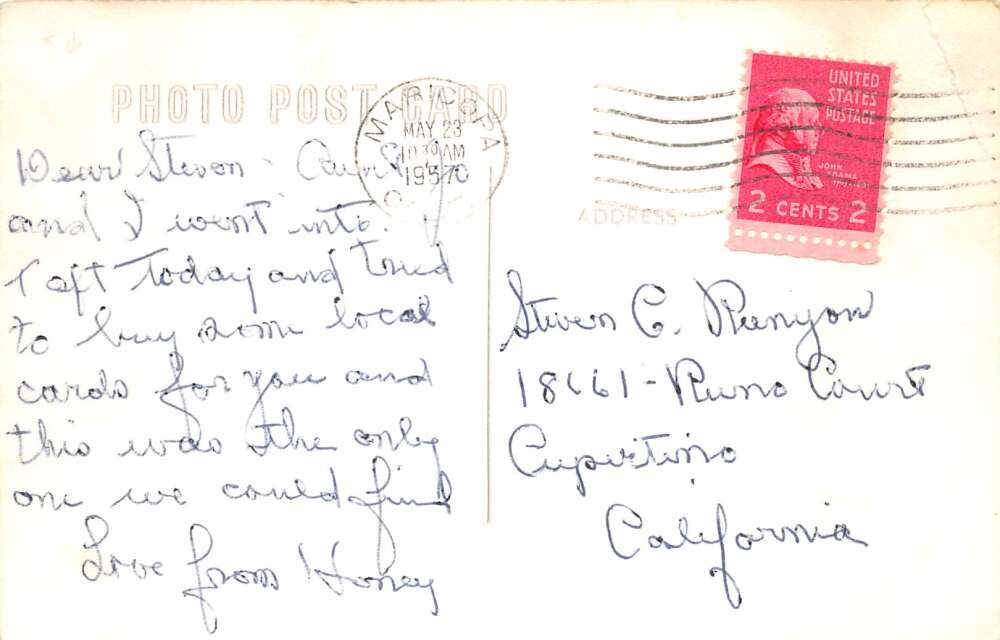 PHOTO POST CARD
MARICOPA
MAY 23
10 30 AM
1957
UNITED
STATES
POSTAGE
JOHN
ADAMS
2 CENTS 2
ADDRESS
Dear Steven
and I went into
Taft today and tried
to buy some local
cards for you and
this was the only
one we could find
Love from Honey
Steven C. Runyon
18661 - Runo Court
Cupertino
California